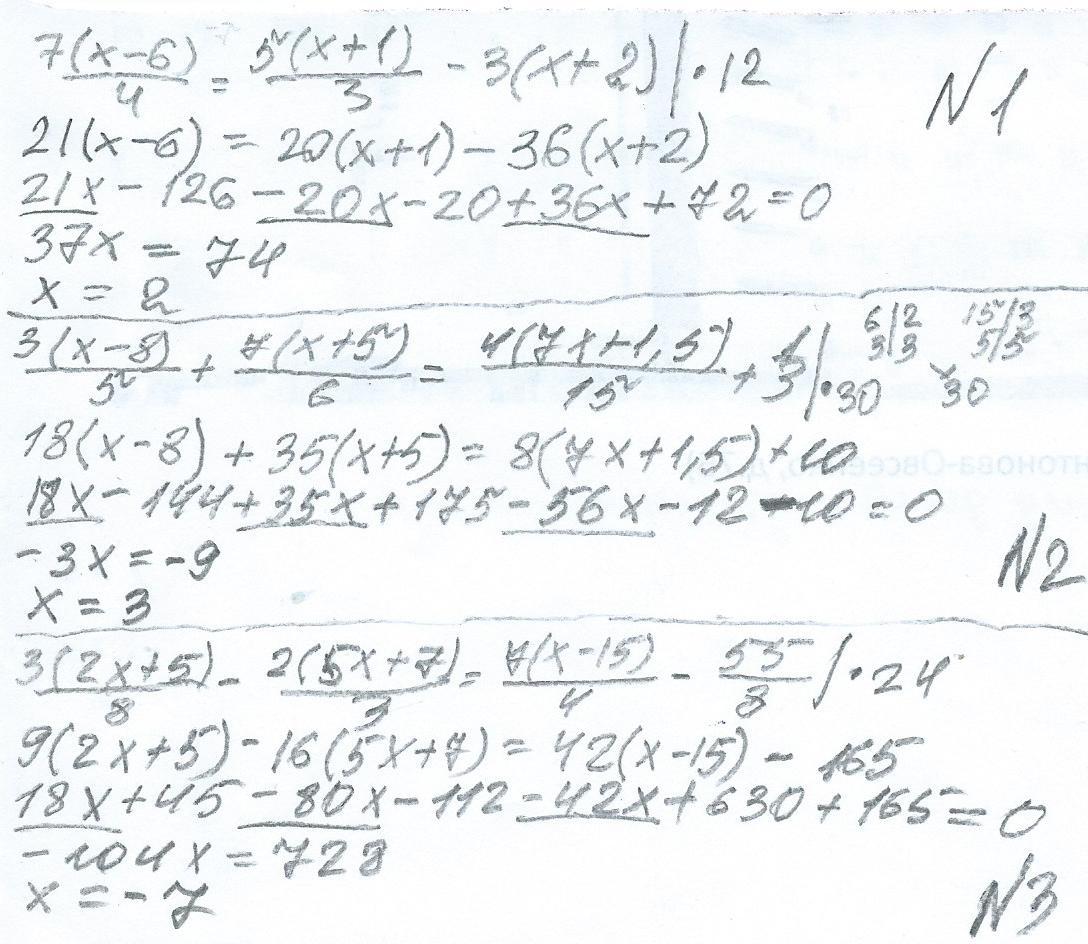 7(x-6)/4 = 5(x+1)/3 - 3(x+2) | · 12
N1
21(x-6) = 20(x+1) - 36(x+2)
21x - 126 - 20x - 20 + 36x + 72 = 0
37x = 74
x = 2
3(x-8)/5 + 7(x+5)/6 = 4(7x+1,5)/15 + 1/3 | · 30
6|2 15|3
3|3 5|5
30
18(x-8) + 35(x+5) = 8(7x+1,5) + 10
18x - 144 + 35x + 175 - 56x - 12 - 10 = 0
-3x = -9
N2
x = 3
3(2x+5)/8 - 2(5x+7)/3 = 7(x-15)/4 - 55/8 | · 24
9(2x+5) - 16(5x+7) = 42(x-15) - 165
18x + 45 - 80x - 112 - 42x + 630 + 165 = 0
-104x = 728
x = -7
N3